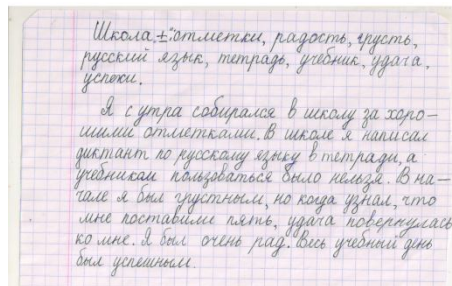 Школа, ± отметки, радость, грусть,
русский язык, тетрадь, учебник, удача,
успехи.
Я с утра собирался в школу за хоро-
шими отметками. В школе я написал
диктант по русскому языку в тетради, а
учебником пользоваться было нельзя. В на-
чале я был грустным, но когда узнал, что
мне поставили пять, удача повернулась
ко мне. Я был очень рад. Весь учебный день
был успешным.